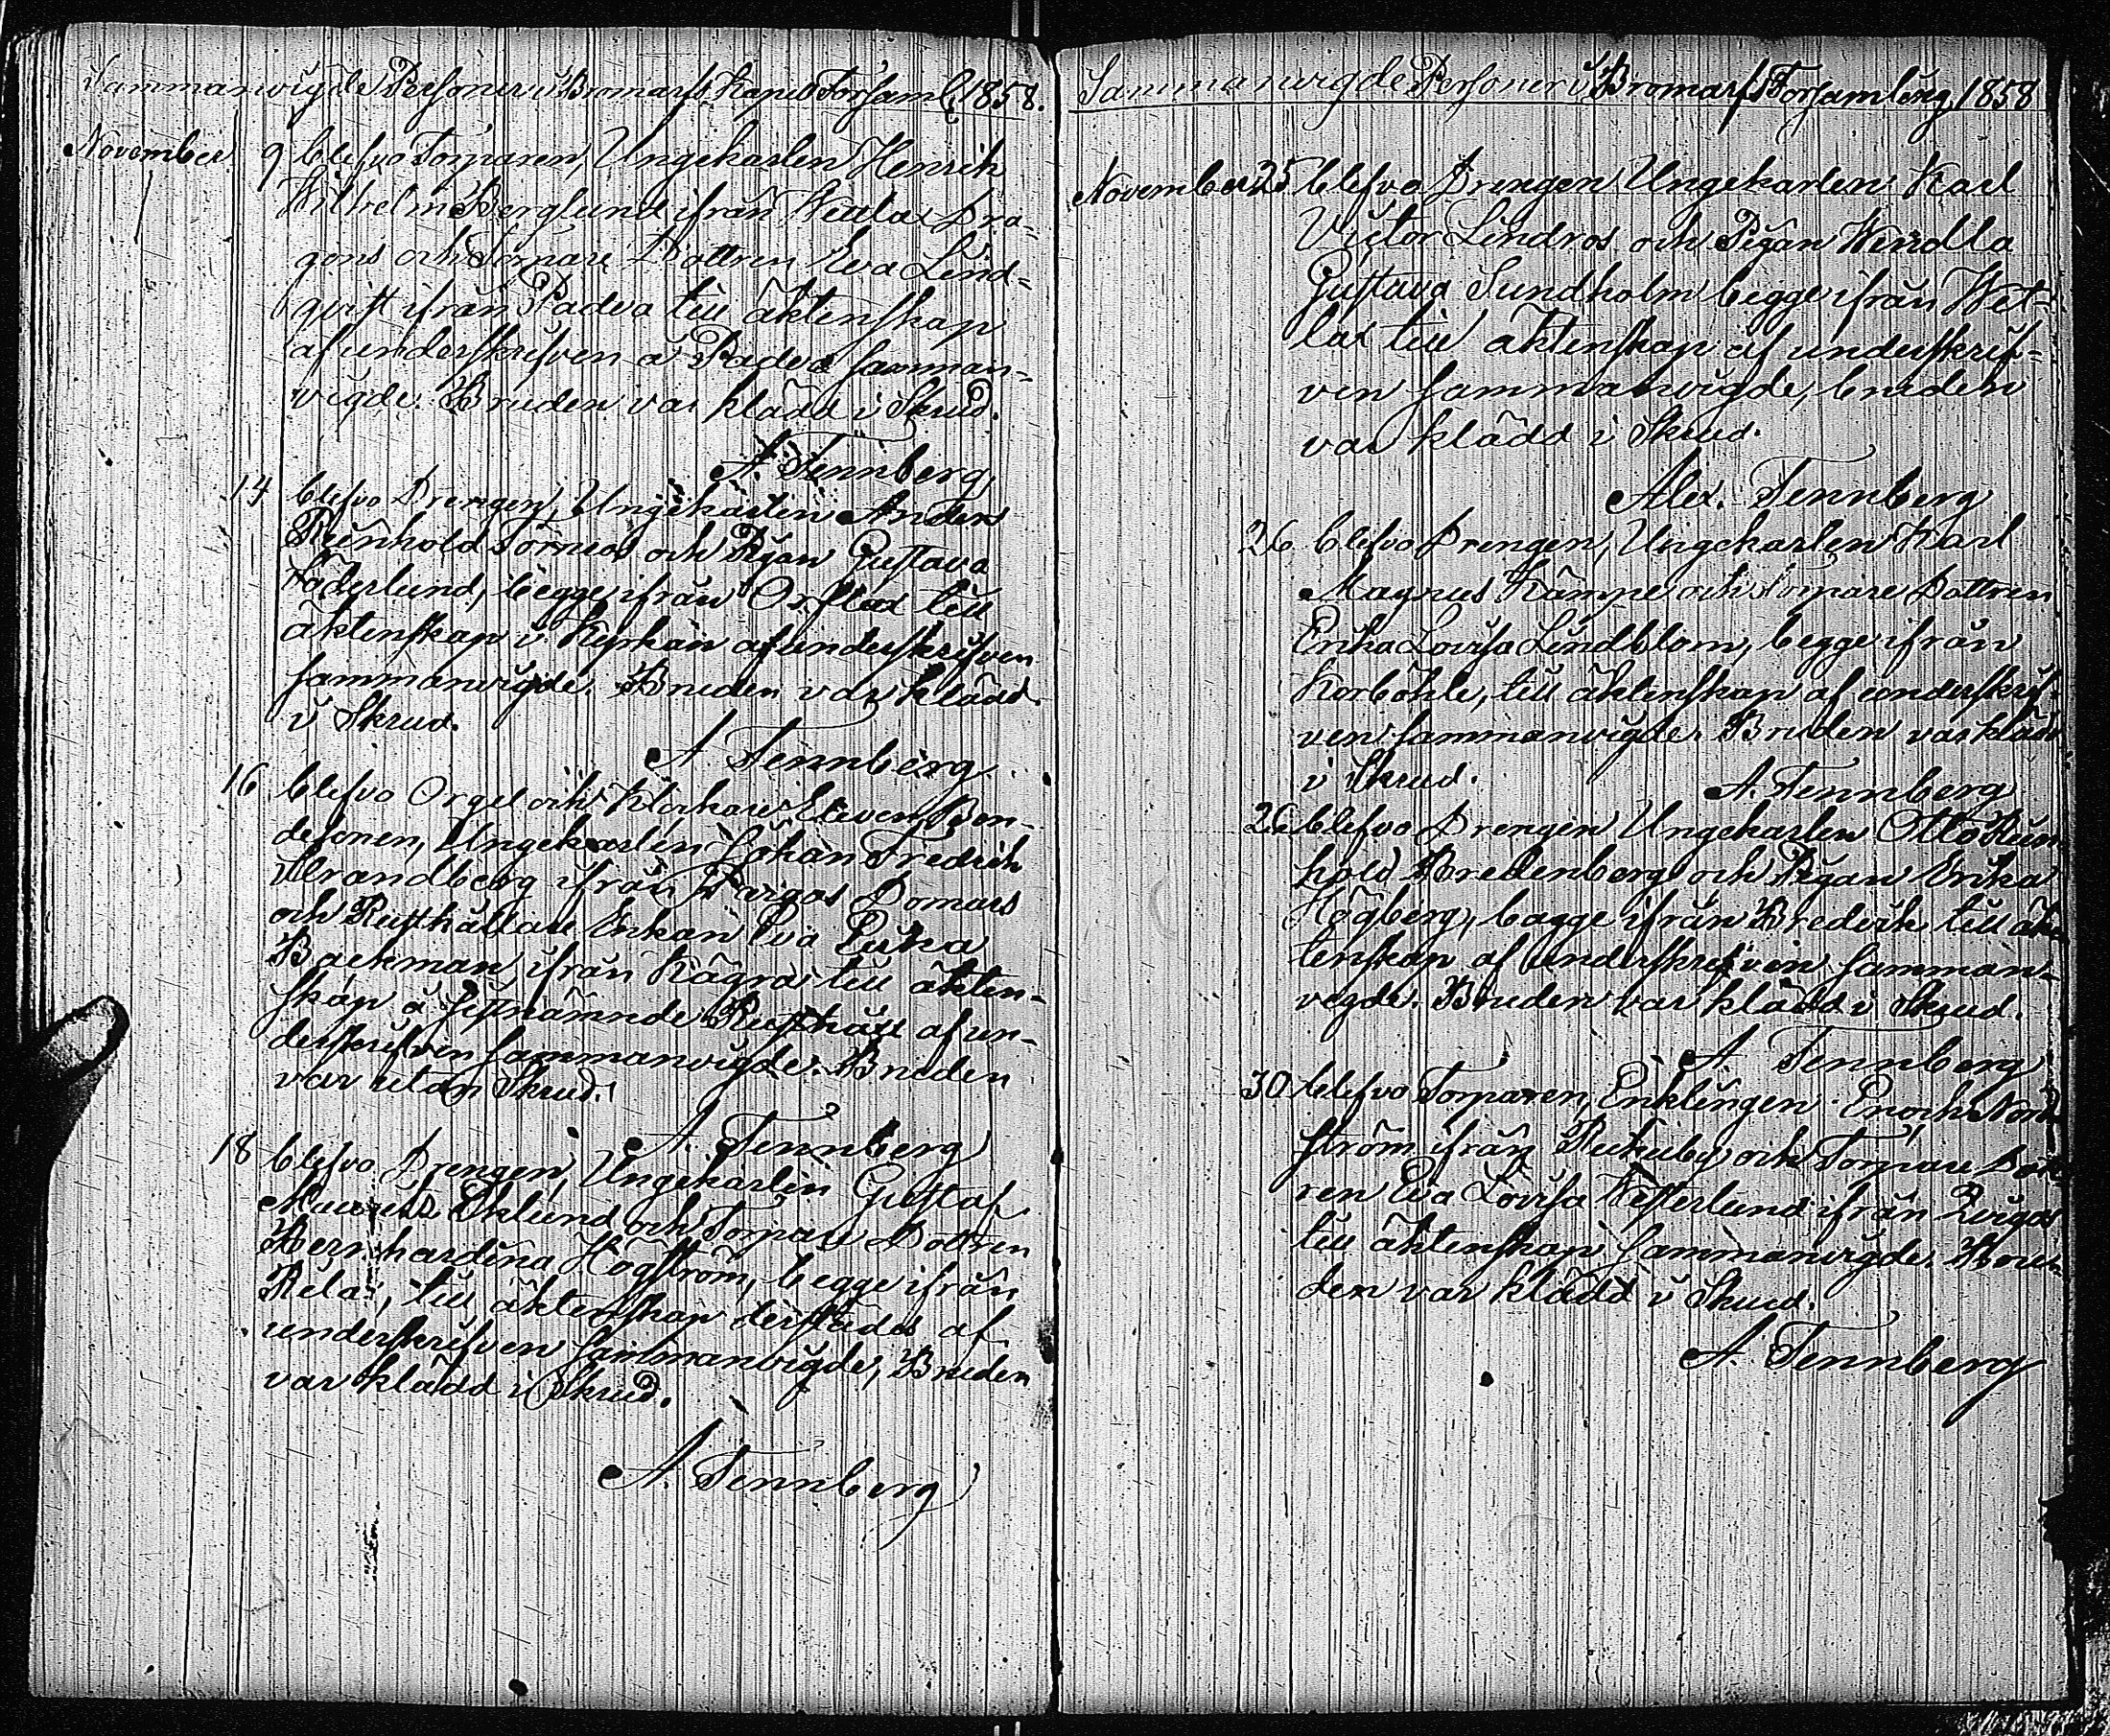 Sammanvigde Personer i Bromarfs Kapell Församl 1858.
November 9 blefvo Torparen, Ungekarlen Henrik
Wilhelm Berglund ifrån Wättlax Dra-
gons och Torpare Dottren Eva Lind-
qvist ifrån Padva till äktenskap
af underskrifven å Padva samman-
vigde. Bruden var klädd i Skrud.
A. Tennberg
14 blefvo Drengen, Ungekarlen Anders
Reinhold Törnros och Pigan Gustava
Söderlund, begge ifrån Orslax till
äktenskap i Kyrkan af underskrifven
sammanvigde. Bruden var klädd
i Skrud.
A. Tennberg
16 blefvo Orgel och Klockare Eleven Bon-
desonen, Ungekarlen Johan Fredrik
Strandberg ifrån Pargas
och Rusthållare Enkan Eva
Backman ifrån Kägra till äkten-
skap å sistnämnde Rusthåll af un-
derskrifven sammanvigde. Bruden
var utan Skrud.
A. Tennberg
18 blefvo Drengen, Ungekarlen Gustaf
Mauritz Eklund och Torpare Dottren
Bernhardina Högström, begge ifrån
Rilax, till äktenskap derstädes af
underskrifven sammanvigde, Bruden
var klädd i Skrud.
A. Tennberg
Sammanvigde Personer i Bromarfs Församling 1858
November 25 blefvo Drengen Ungekarlen Karl
Victor Lindros och Pigan Wendla
Gustava Sundholm begge ifrån Wät-
lax till äktenskap af underskrif-
ven sammanvigde, bruden
var klädd i Skrud.
Alex. Tennberg
26 blefvo Drengen, Ungekarlen Karl
Magnus Kämpe och Torpare Dottren
Erika Lovisa Lindblom, begge ifrån
Korböhle, till äktenskap af underskrif-
ven sammanvigde. Bruden var klädd
i Skrud.
A. Tennberg
26 blefvo Drengen Ungekarlen Otto Rein
hold Bredenberg och Pigan Erika
Högberg, begge ifrån Bredvik till äk
tenskap af underskrifven samman-
vigde. Bruden var klädd i Skrud.
A. Tennberg
30 blefvo Torparen, Enklingen Enoch Nord
ström ifrån Rekuby och Torpare Dott
ren Eva Lovisa Westerlund ifrån
till äktenskap sammanvigde. Bru-
den var klädd i Skrud.
A. Tennberg